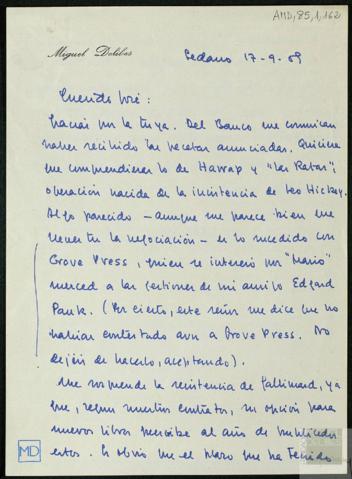 AMD,85,1,162
Miguel Delibes
Sedano 17-9-69
Querido José:
Gracias por la tuya. Del Banco me comunican
haber recibido las pesetas anunciadas. Quisiera
que comprendieras lo de Harrap y "Las Ratas",
operación nacida de la insistencia de Leo Hickey.
Algo parecido — aunque me parece bien que
lleves tú la negociación — es lo sucedido con
Grove Press, quien se interesó por "Mario"
merced a las gestiones de mi amigo Edgard
Pauk. (Por cierto, este señor me dice que no
habían contestado aun a Grove Press. No
dejéis de hacerlo, aceptando).
Me sorprende la resistencia de Gallimard, ya
que, según nuestros contratos, su opción para
nuevos libros prescribe al año de publicados
estos. Es obvio que el plazo que ha tenido
MD